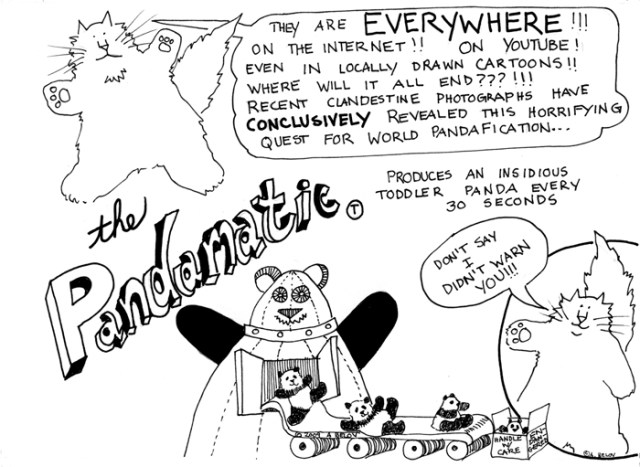 THEY ARE EVERYWHERE!!!
ON THE INTERNET!! ON YOUTUBE!
EVEN IN LOCALLY DRAWN CARTOONS!!
WHERE WILL IT ALL END???!!!
RECENT CLANDESTINE PHOTOGRAPHS HAVE
CONCLUSIVELY REVEALED THIS HORRIFYING
QUEST FOR WORLD PANDAFICATION...
the
Pandamatic T
PRODUCES AN INSIDIOUS
TODDLER PANDA EVERY
30 SECONDS
DON'T SAY
I
DIDN'T WARN
YOU!!!
HANDLE
W/
CARE
EN-
DAN-
GERED